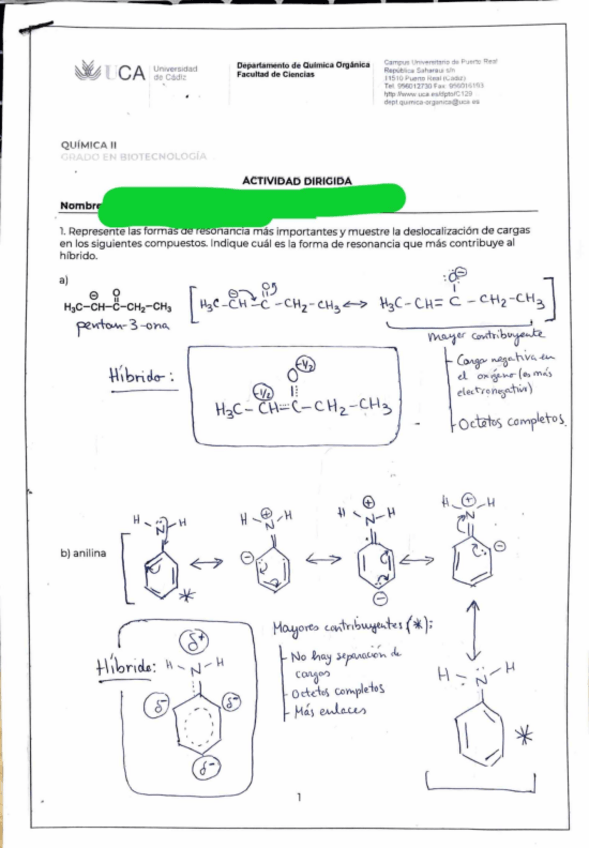 UCA Universidad de Cádiz
Departamento de Química Orgánica
Facultad de Ciencias
Campus Universitario de Puerto Real
República Saharaui s/n
11510 Puerto Real (Cádiz)
Tel: 956012730 Fax:
dept.quimica-organica@uca.es
QUÍMICA II
GRADO EN BIOTECNOLOGÍA
ACTIVIDAD DIRIGIDA
Nombre
1. Represente las formas de resonancia más importantes y muestre la deslocalización de cargas
en los siguientes compuestos. Indique cuál es la forma de resonancia que más contribuye al
híbrido.
a)
H₃C-CH-C-CH₂-CH₃
O
pentan-3-ona
H₃C-CH-C-CH₂-CH₃ ↔ H₃C-CH=C-CH₂-CH₃
Mayor contribuyente
- Carga negativa en
el oxígeno (es más
electronegativo)
- Octetos completos
Híbrido:
-1/2
O
-1/2
H₃C-CH=C-CH₂-CH₃
b) anilina
H-N-H ↔ H-N-H ↔ H-N-H ↔ H-N-H
*
Mayores contribuyentes (*):
- No hay separación de
cargas
- Octetos completos
- Más enlaces
Híbrido:
δ+
H-N-H
δ-
δ-
δ-
H-N-H
*
1